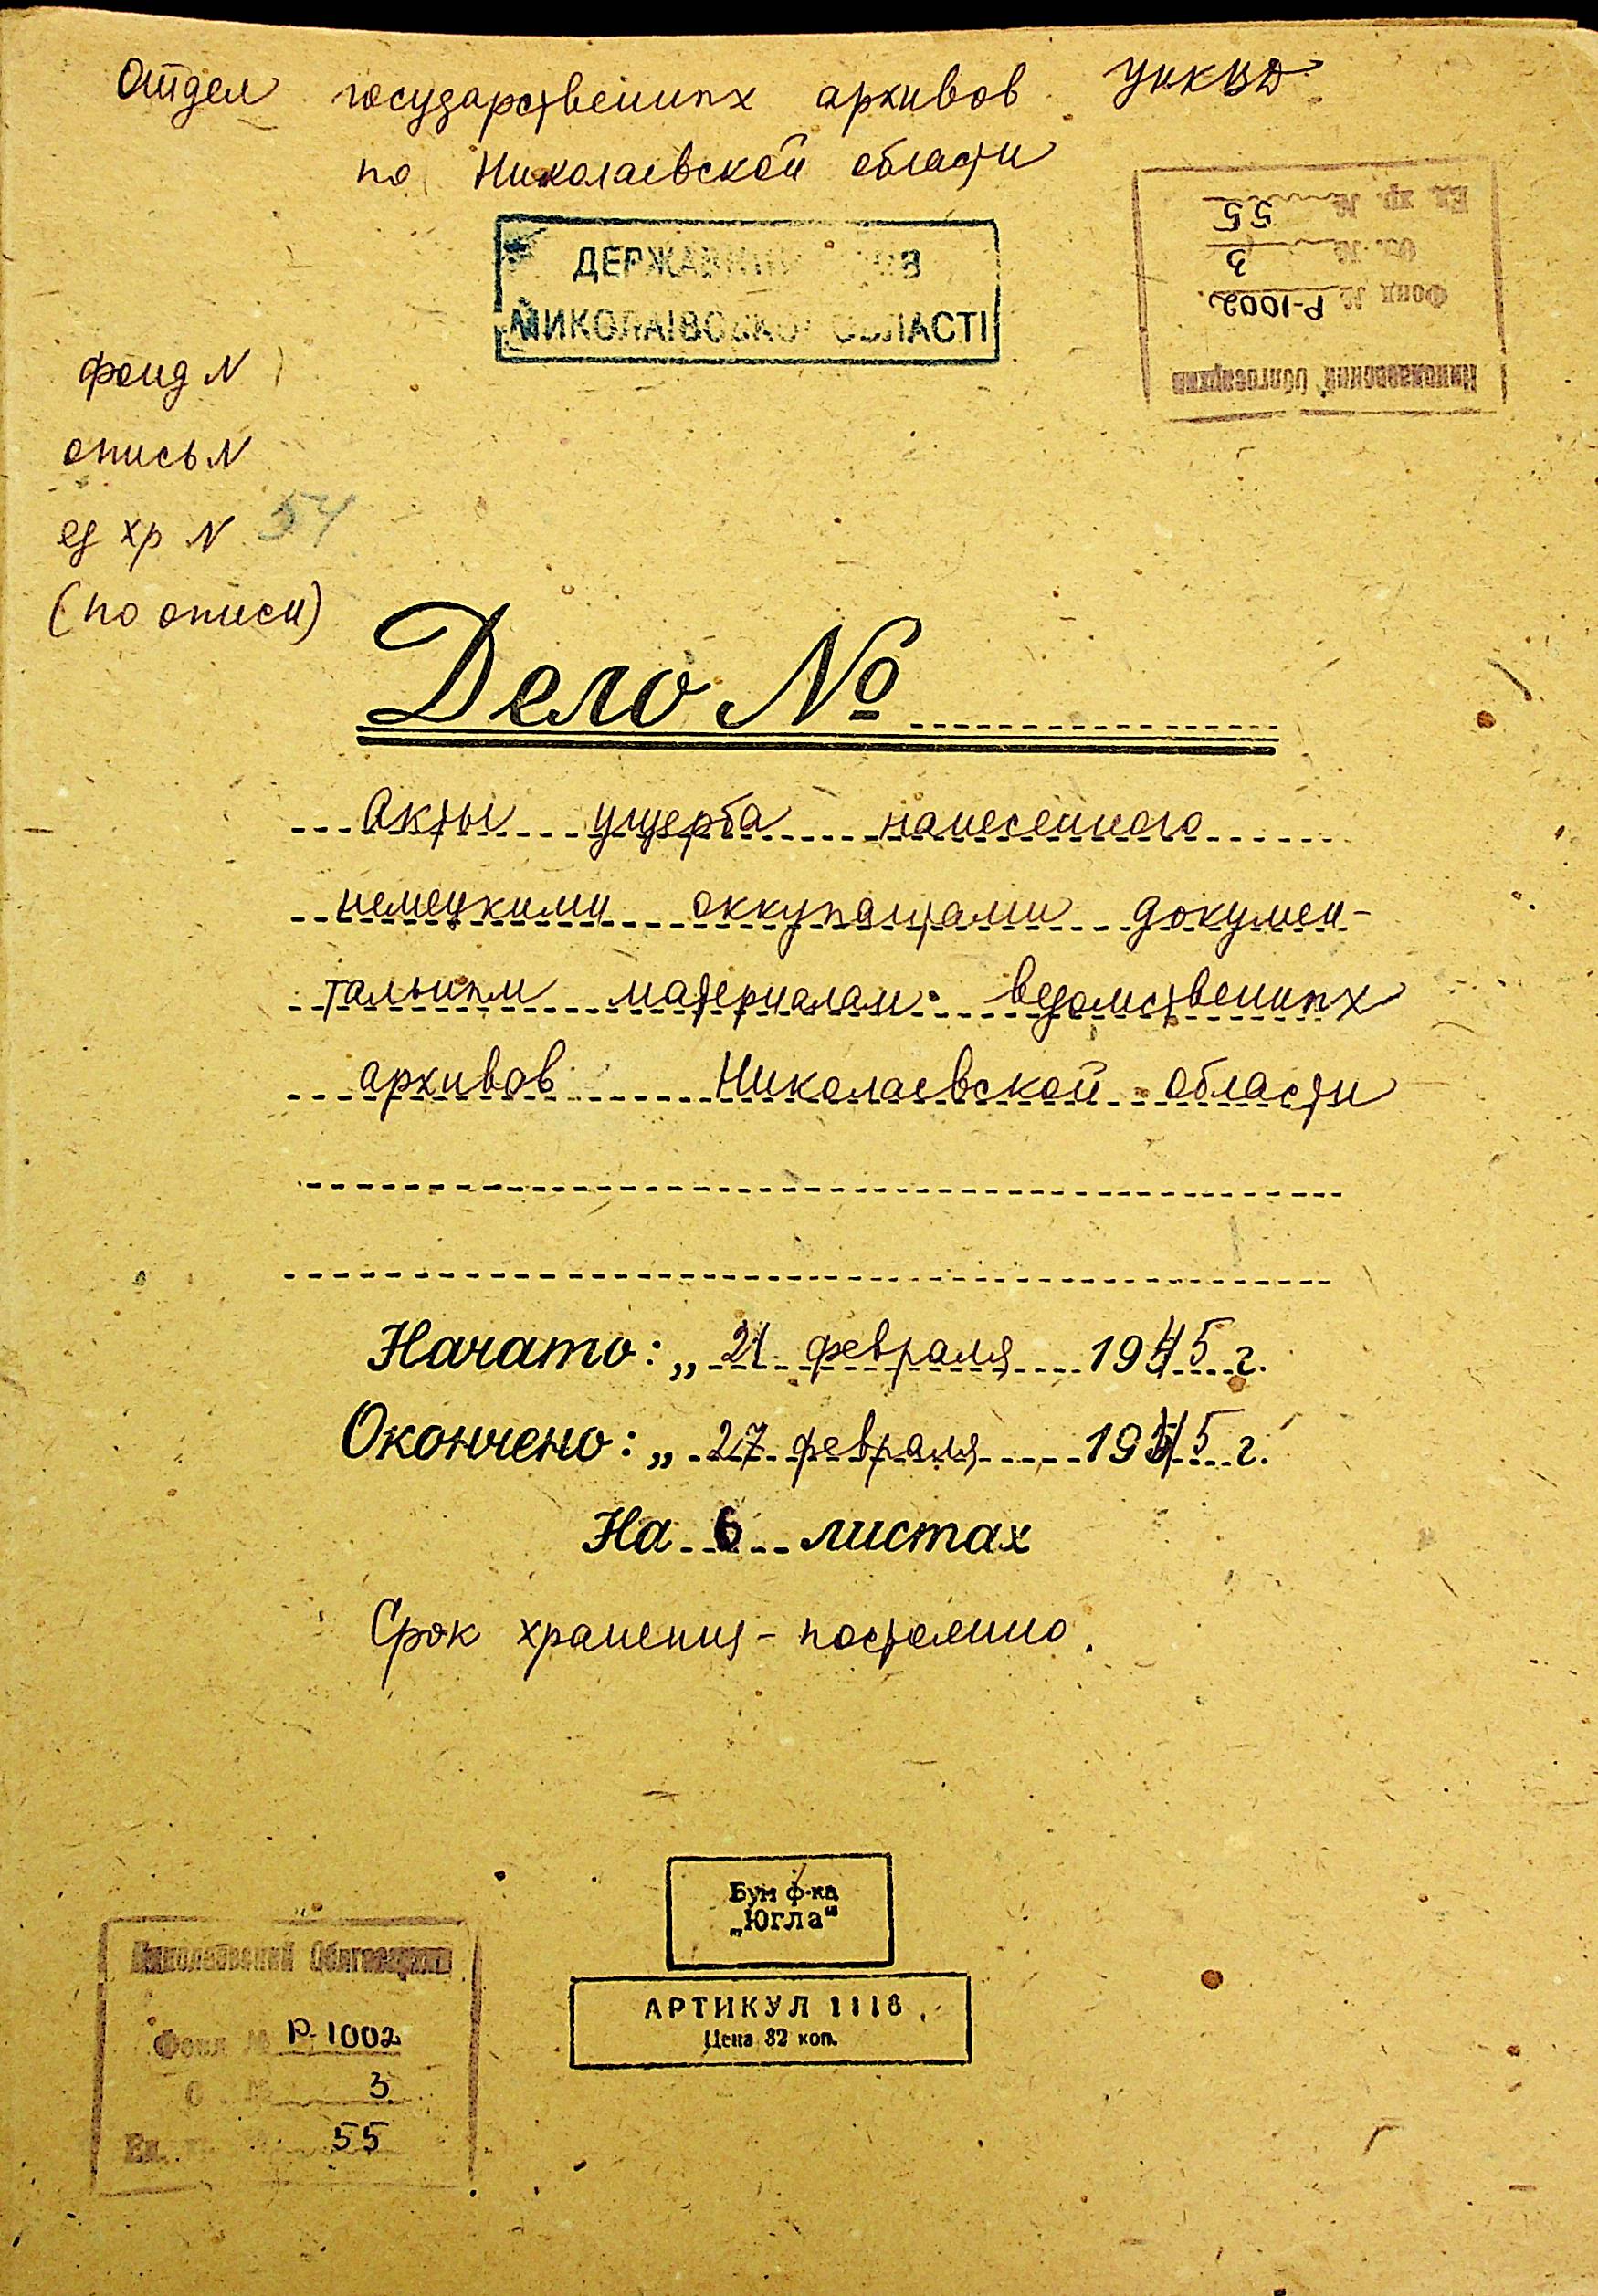 Отдел государственных архивов УНКВД
по Николаевской области
ДЕРЖАВНИЙ АРХІВ
МИКОЛАЇВСЬКОЇ ОБЛАСТІ
Николаевский Облгосархив
Фонд № Р-1002
Оп. № 3
Ед. хр. № 55
фонд N
опись N
ед хр N 54
(по описи)
Дело №
Акты ущерба нанесенного
немецкими оккупантами докумен-
тальным материалам ведомственных
архивов Николаевской области
Начато: „ 21 февраля 1945 г.
Окончено: „ 27 февраля 1945 г.
На 6 листах
Срок хранения - постоянно.
Бум ф-ка
„Югла“
АРТИКУЛ 1116
Цена 82 коп.
Николаевский Облгосархив
Фонд № Р-1002
О № 3
Ед. 55